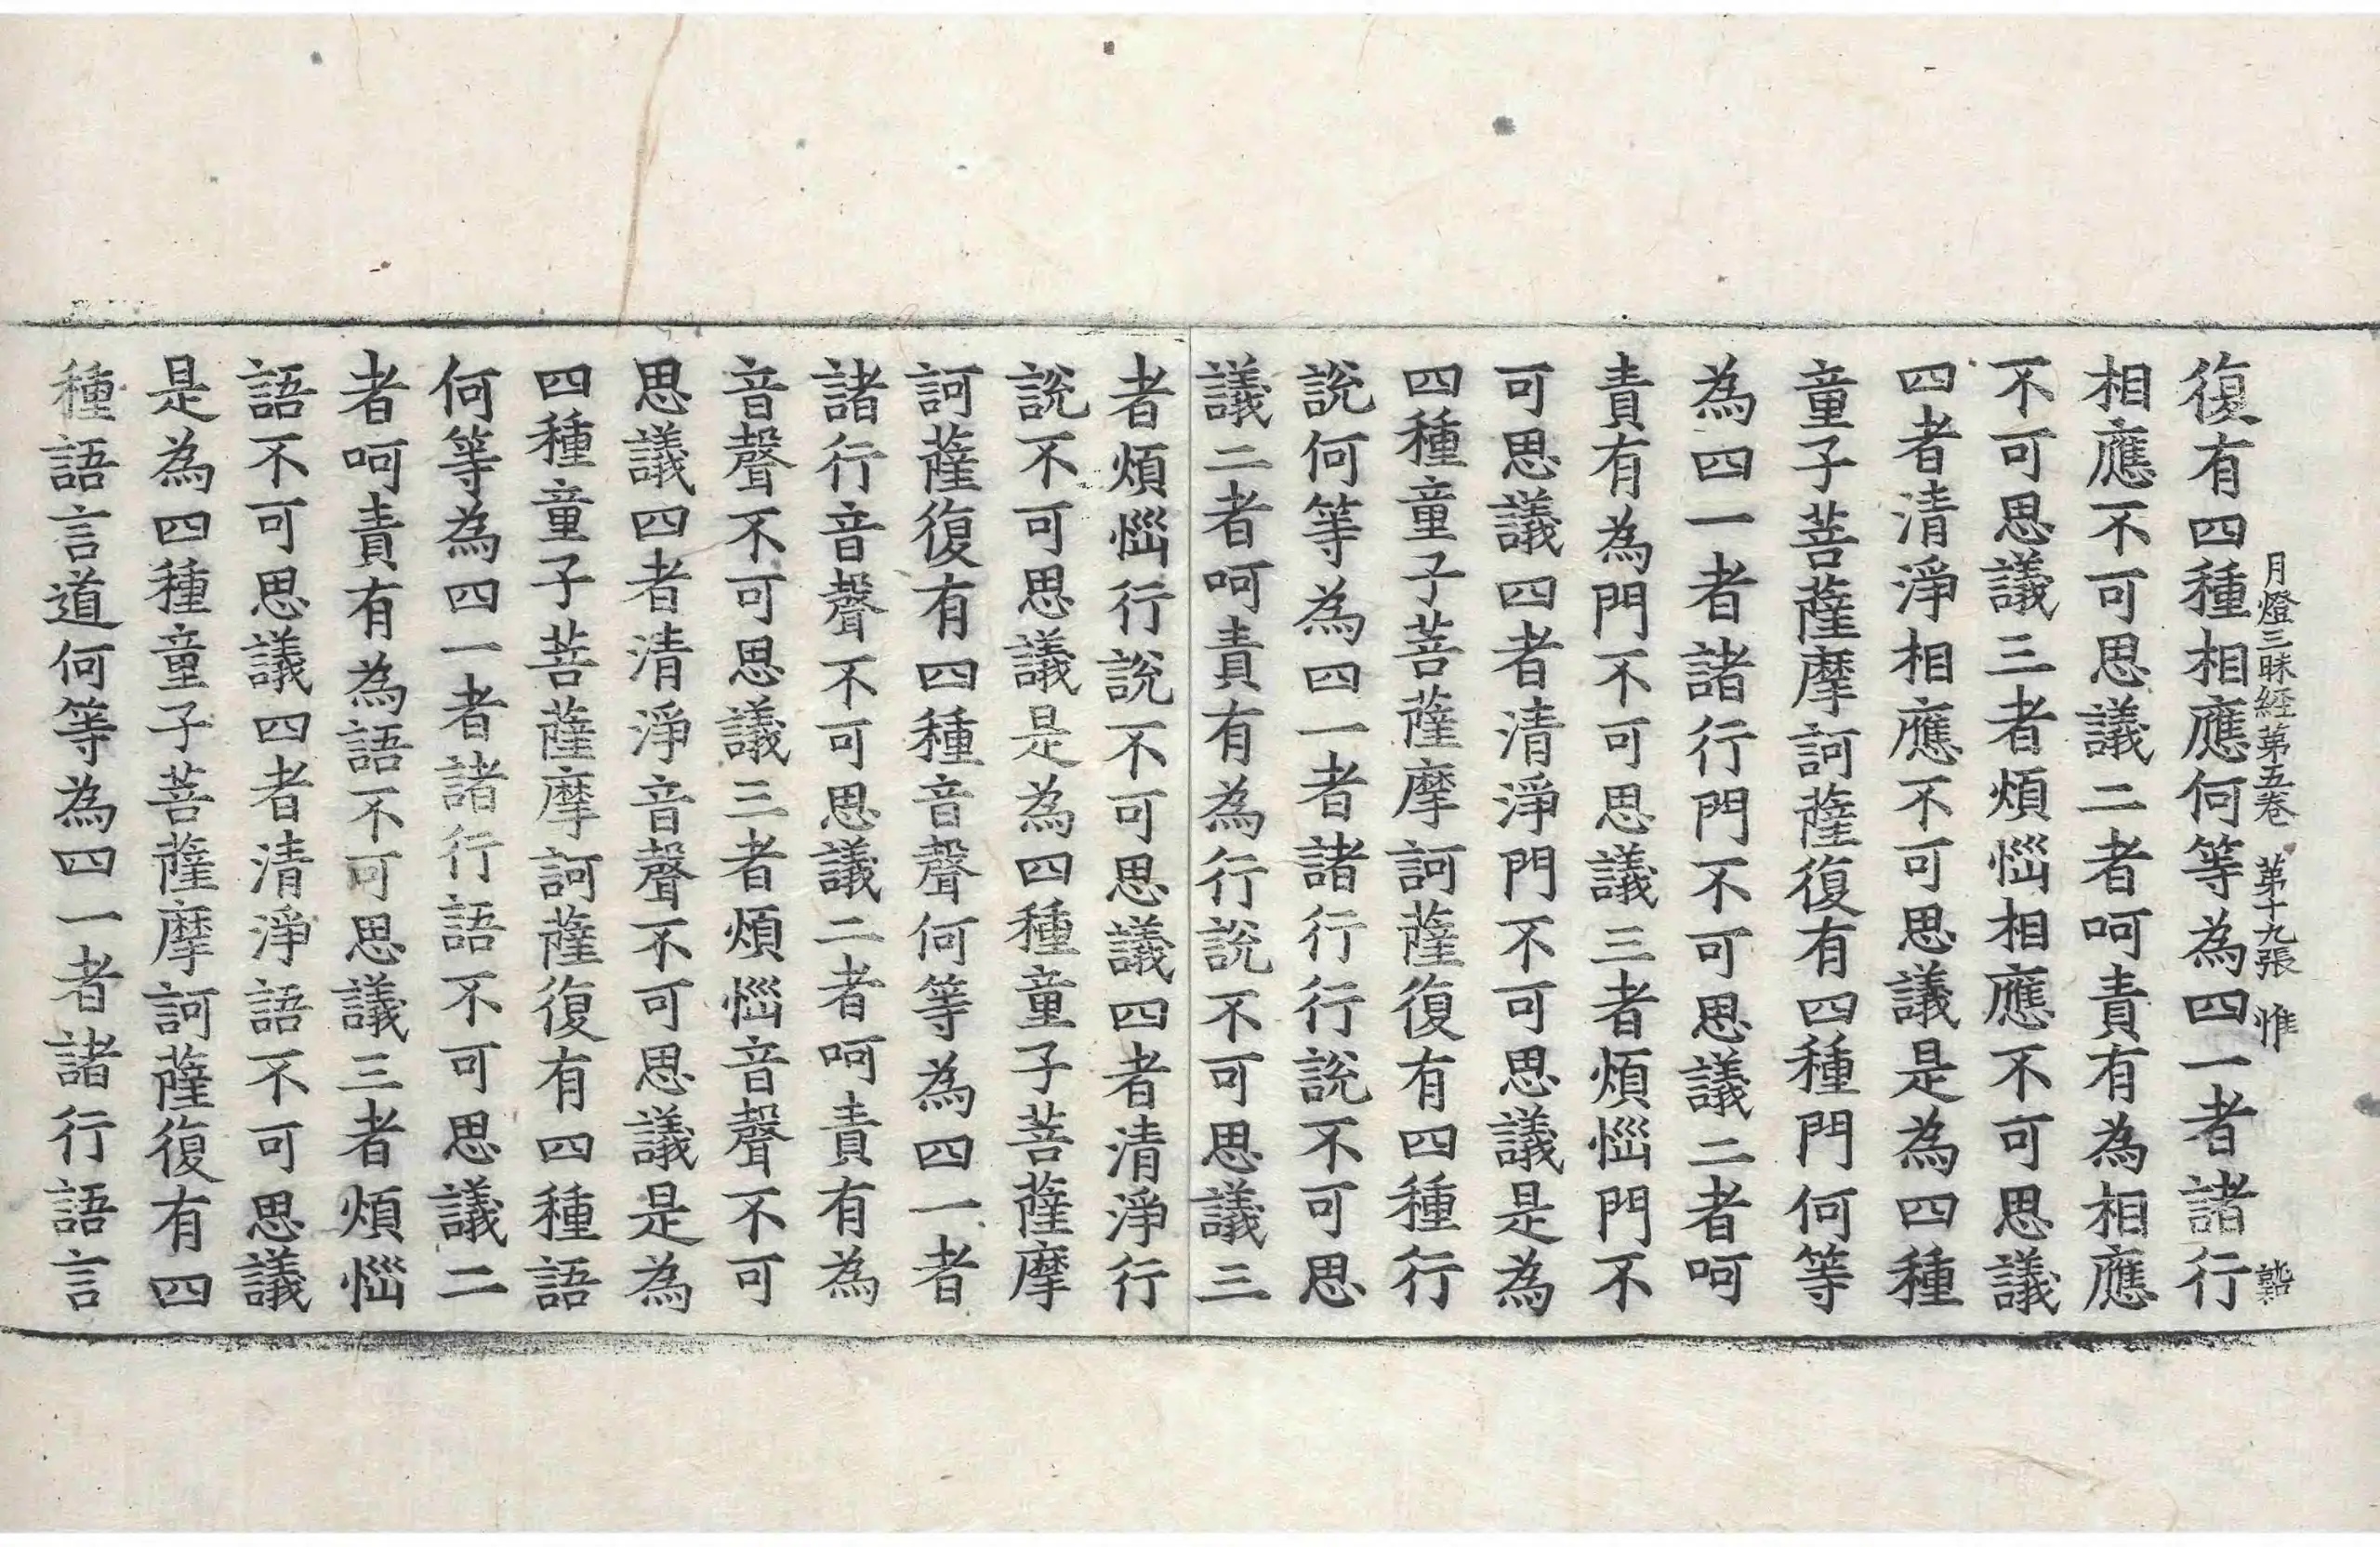 月燈三昧経第五卷 第十九張 惟
復有四種相應何等為四一者諸行
相應不可思議二者呵責有為相應
不可思議三者煩惱相應不可思議
四者清淨相應不可思議是為四種
童子菩薩摩訶薩復有四種門何等
為四一者諸行門不可思議二者呵
責有為門不可思議三者煩惱門不
可思議四者清淨門不可思議是為
四種童子菩薩摩訶薩復有四種行
說何等為四一者諸行行說不可思
議二者呵責有為行說不可思議三
者煩惱行說不可思議四者清淨行
說不可思議是為四種童子菩薩摩
訶薩復有四種音聲何等為四一者
諸行音聲不可思議二者呵責有為
音聲不可思議三者煩惱音聲不可
思議四者清淨音聲不可思議是為
四種童子菩薩摩訶薩復有四種語
何等為四一者諸行語不可思議二
者呵責有為語不可思議三者煩惱
語不可思議四者清淨語不可思議
是為四種童子菩薩摩訶薩復有四
種語言道何等為四一者諸行語言